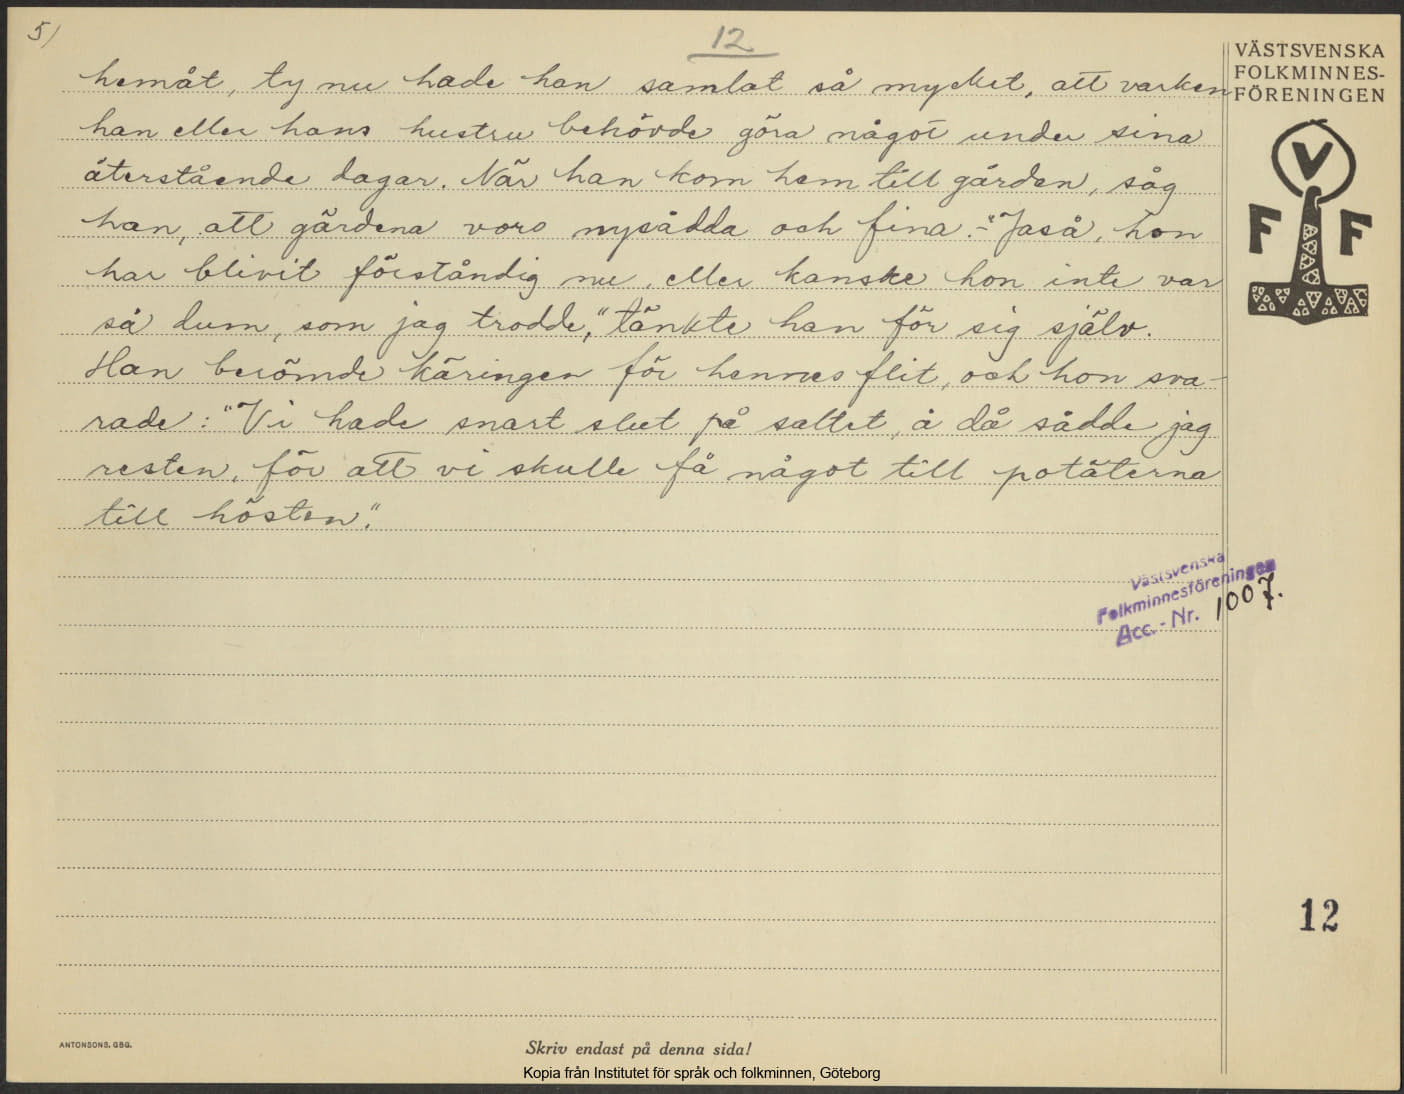 5)
12
hemåt, ty nu hade han samlat så mycket, att varken
han eller hans hustru behövde göra något under sina
återstående dagar. När han kom hem till gården, såg
han, att gärdena voro nysådda och fina. - "Jaså, hon
har blivit förståndig nu, eller kanske hon inte var
så dum, som jag trodde," tänkte han för sig själv.
Han berömde käringen för hennes flit, och hon sva-
rade: "Vi hade snart slut på saltet, å då sådde jag
resten, för att vi skulle få något till potäterna
till hösten."
VÄSTSVENSKA
FOLKMINNES-
FÖRENINGEN
V
F F
Västsvenska
Folkminnesföreningen
Acc.-Nr. 1007.
12
ANTONSONS, GBG.
Skriv endast på denna sida!
Kopia från Institutet för språk och folkminnen, Göteborg